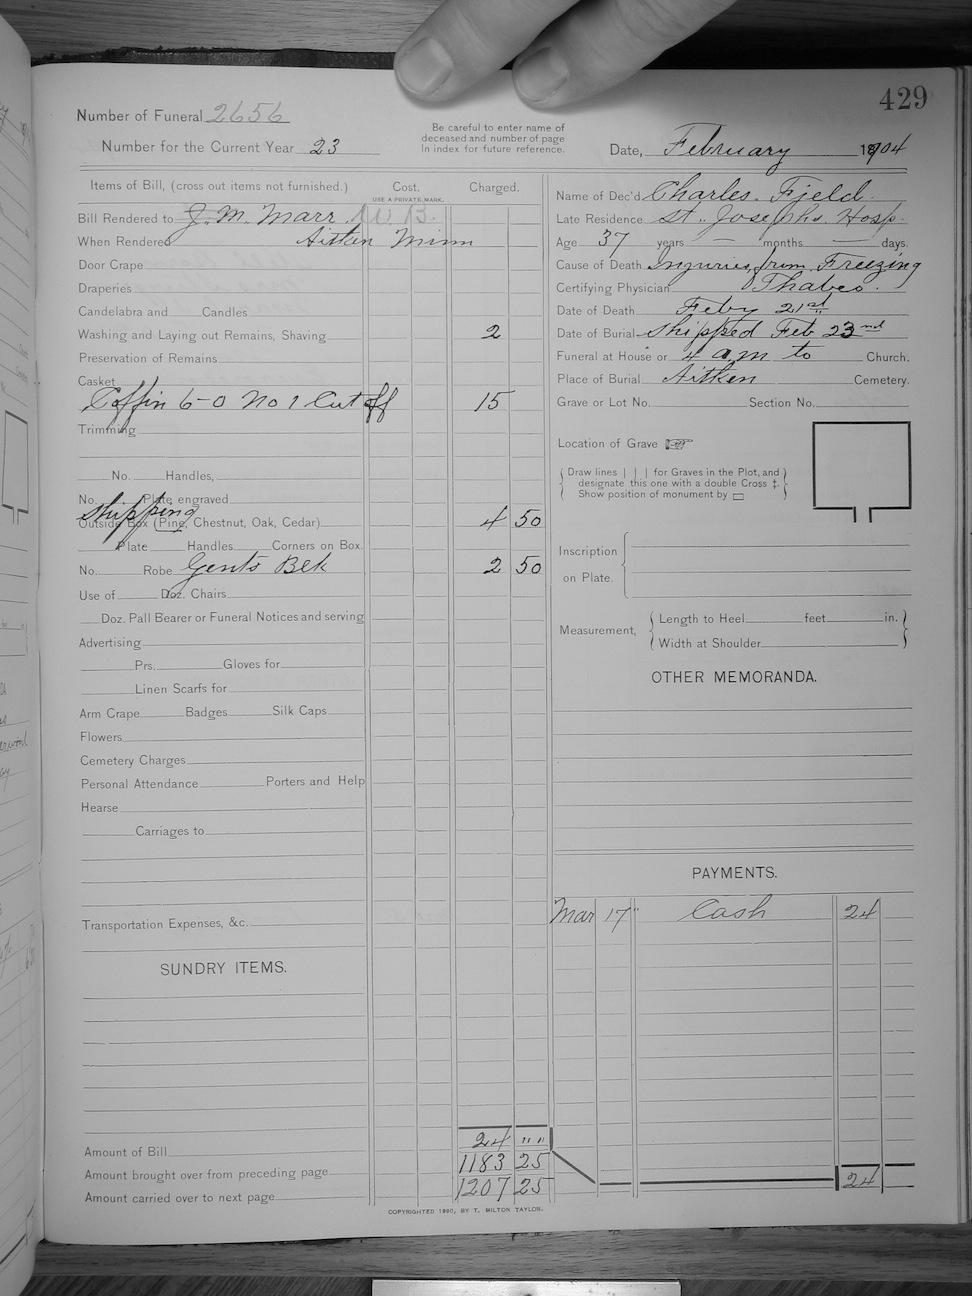 429
Number of Funeral 2656
Number for the Current Year 23
Be careful to enter name of
deceased and number of page
In index for future reference.
Date, February 1904
Items of Bill, (cross out items not furnished.) Cost. Charged.
USE A PRIVATE MARK.
Bill Rendered to J. M. Marr
When Rendered Aitken Minn
Door Crape
Draperies
Candelabra and Candles
Washing and Laying out Remains, Shaving 2
Preservation of Remains
Casket
Coffin 6-0 No 1 Cut off 15
Trimming
No. Handles,
No. Plate engraved
Shipping
Outside Box (Pine, Chestnut, Oak, Cedar) 4 50
Plate Handles Corners on Box.
No. Robe Gents Blk 2 50
Use of Doz. Chairs
Doz. Pall Bearer or Funeral Notices and serving
Advertising
Prs. Gloves for
Linen Scarfs for
Arm Crape Badges Silk Caps
Flowers
Cemetery Charges
Personal Attendance Porters and Help
Hearse
Carriages to
Transportation Expenses, &c.
SUNDRY ITEMS.
Amount of Bill 24 " "
Amount brought over from preceding page 1183 25
Amount carried over to next page 1207 25
COPYRIGHTED 1890, BY T. MILTON TAYLOR.
Name of Dec'd Charles. Fjeld.
Late Residence St. Josephs. Hosp.
Age 37 years — months — days.
Cause of Death Injuries from Freezing
Certifying Physician Thabes.
Date of Death Feby 21st
Date of Burial Shipped Feb 23nd
Funeral at House or 4 a.m to Church.
Place of Burial Aitken Cemetery.
Grave or Lot No. Section No.
Location of Grave ☞
Draw lines | | | for Graves in the Plot, and
designate this one with a double Cross ‡.
Show position of monument by ▭
Inscription
on Plate.
Measurement,
Length to Heel feet in.
Width at Shoulder
OTHER MEMORANDA.
PAYMENTS.
Mar 17" Cash 24
24